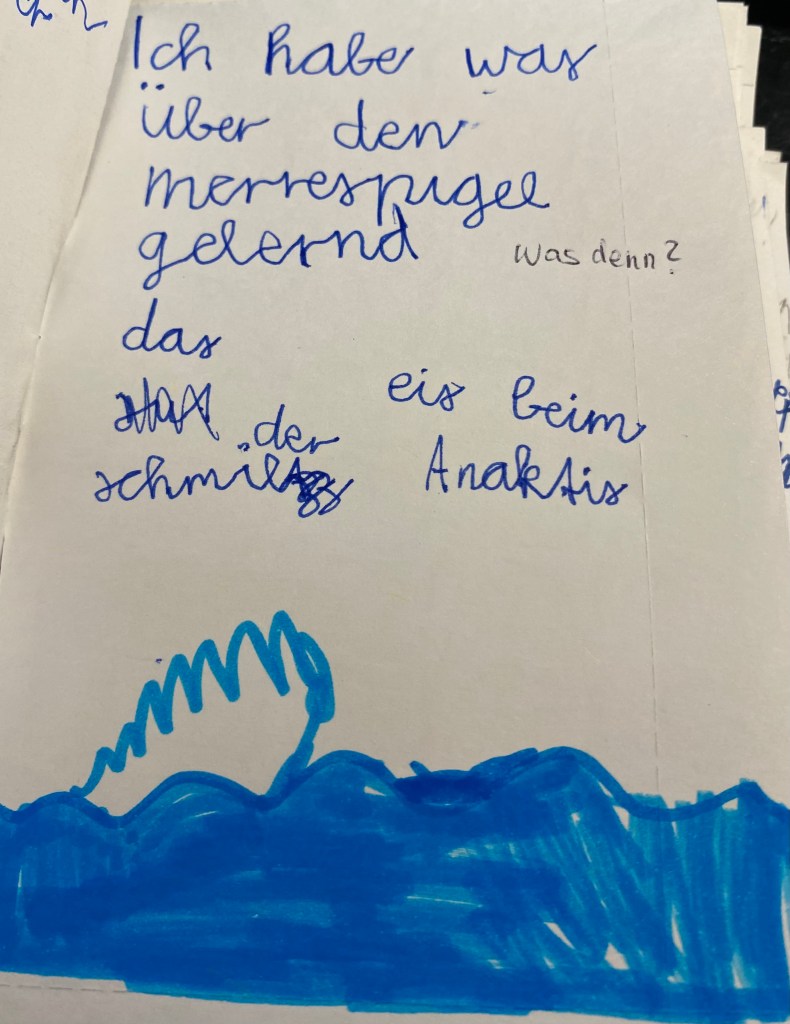 Ich habe was
über den
merrespigel
gelernd
Was denn?
das
der
schmilz
eis beim
Anaktis